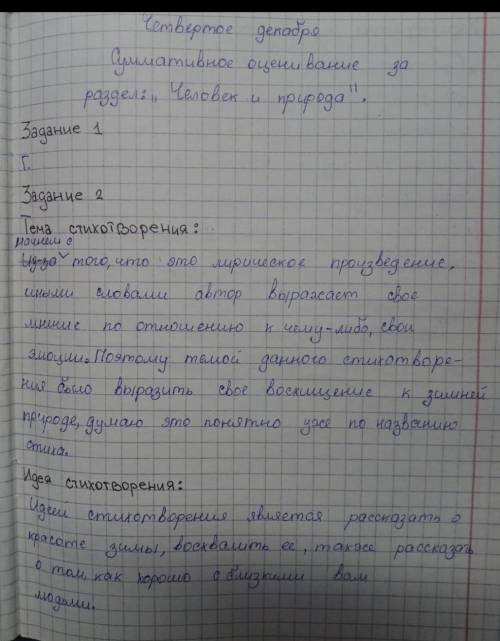 Четвертое декабря
Суммативное оценивание за
раздел: „Человек и природа".
Задание 1
Г.
Задание 2
Тема стихотворения:
начнем с
Из-за того, что это лирическое произведение,
иными словами автор выражает свое
мнние по отношению к чему-либо, свои
эмоции. Поэтому темой данного стихотворе-
ния было выразить свое восхищение к зимней
природе, думаю это понятно уже по названию
стиха.
Идея стихотворения:
Идеей стихотворения является рассказать о
красоте зимы, восхвалить ее, также рассказать
о том, как хорошо с близкими вам
людьми.